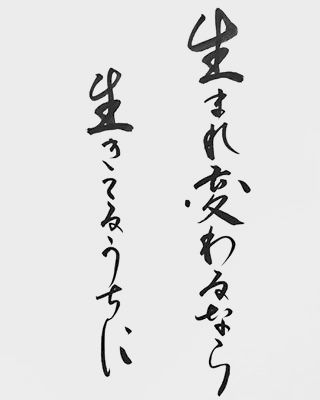 生まれ変わるなら
生きてるうちに